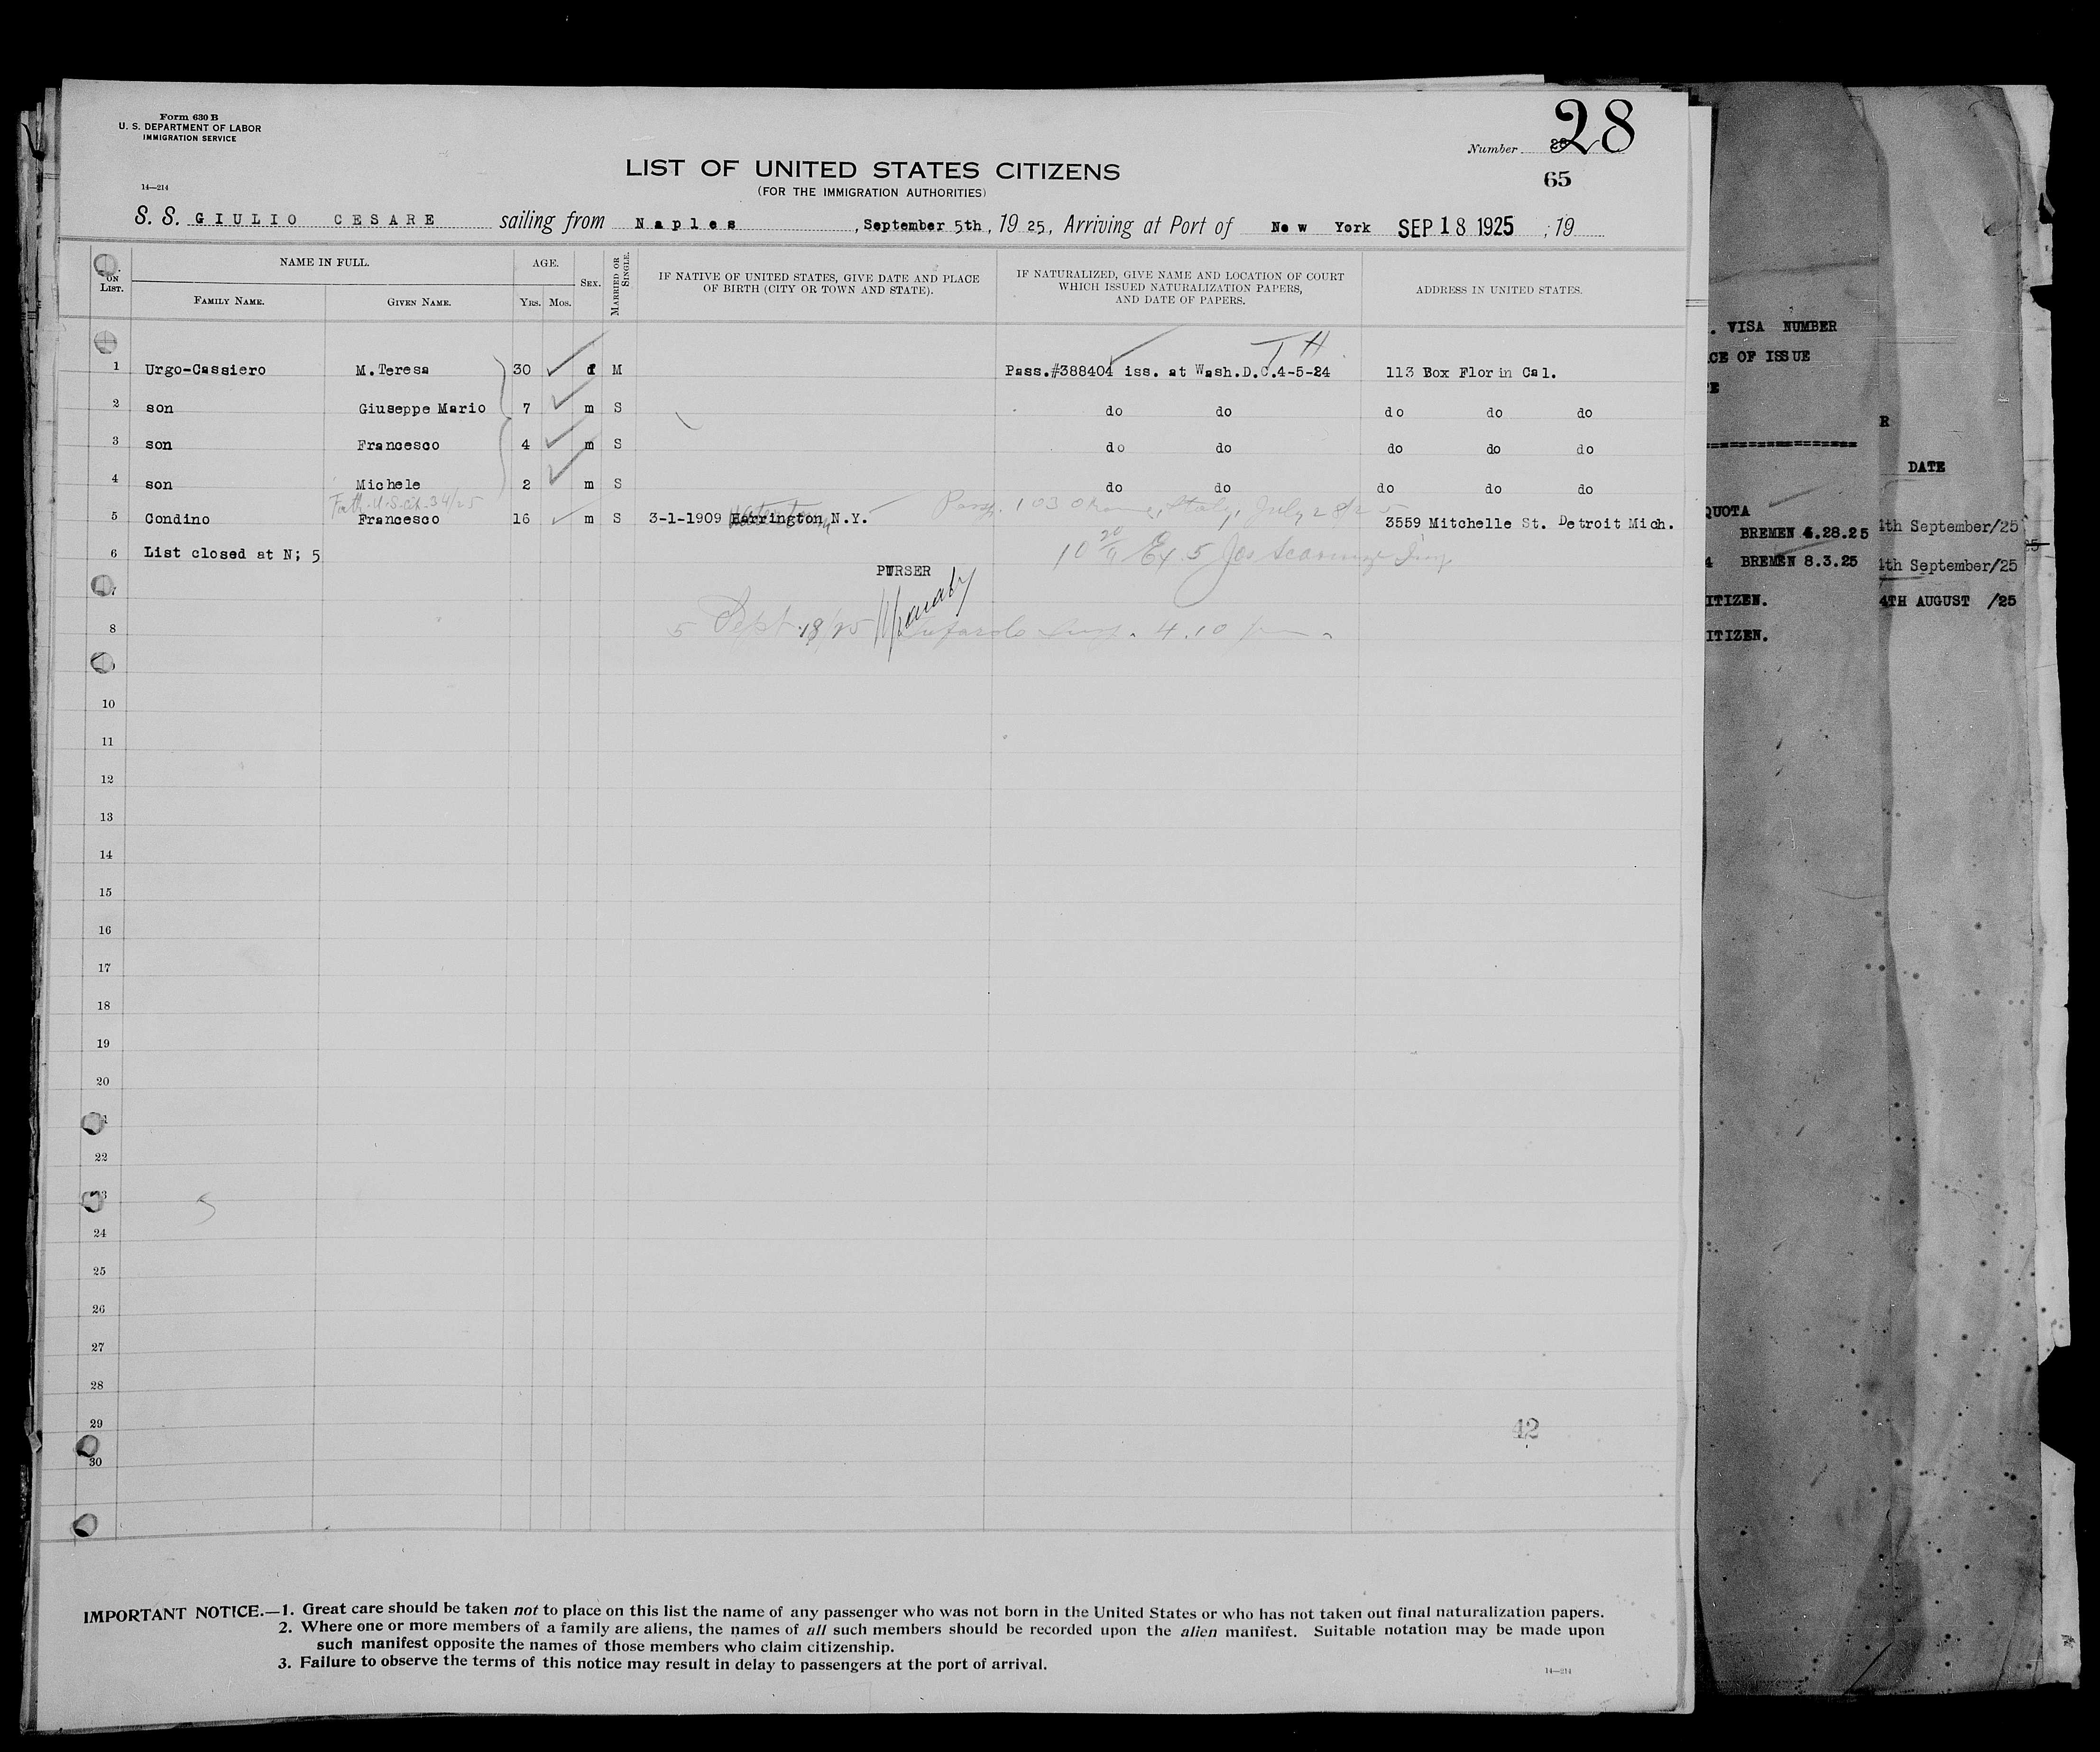 Form 630 B
U. S. DEPARTMENT OF LABOR
IMMIGRATION SERVICE
Number 28
65
LIST OF UNITED STATES CITIZENS
(FOR THE IMMIGRATION AUTHORITIES)
14—214
S. S. GIULIO CESARE sailing from Naples, September 5th, 1925, Arriving at Port of New York SEP 18 1925, 19
ON LIST.
NAME IN FULL.
FAMILY NAME. GIVEN NAME.
AGE.
YRS. MOS.
SEX.
MARRIED OR SINGLE.
IF NATIVE OF UNITED STATES, GIVE DATE AND PLACE
OF BIRTH (CITY OR TOWN AND STATE).
IF NATURALIZED, GIVE NAME AND LOCATION OF COURT
WHICH ISSUED NATURALIZATION PAPERS,
AND DATE OF PAPERS.
ADDRESS IN UNITED STATES.
T H
1 Urgo-Cassiero M.Teresa 30 f M Pass.#388404 iss. at Wash.D.C.4-5-24 113 Box Florin Cal.
2 son Giuseppe Mario 7 m S do do do do do
3 son Francesco 4 m S do do do do do
4 son Michele 2 m S do do do do do
5 Condino Francesco 16 m S 3-1-1909 Harrington N.Y. Italy, July 28/25 3559 Mitchelle St. Detroit Mich.
6 List closed at N; 5
PURSER
8 5 Sept. 18/25 4.10 pm
10
11
12
13
14
15
16
17
18
19
20
22
24
25
26
27
28
29
30
42
IMPORTANT NOTICE.—1. Great care should be taken not to place on this list the name of any passenger who was not born in the United States or who has not taken out final naturalization papers.
2. Where one or more members of a family are aliens, the names of all such members should be recorded upon the alien manifest. Suitable notation may be made upon
such manifest opposite the names of those members who claim citizenship.
3. Failure to observe the terms of this notice may result in delay to passengers at the port of arrival.
14—214
VISA NUMBER
CE OF ISSUE
E
R
DATE
QUOTA
BREMEN 4.28.25 4th September/25
BREMEN 8.3.25 4th September/25
ITIZEN. 4TH AUGUST /25
ITIZEN.